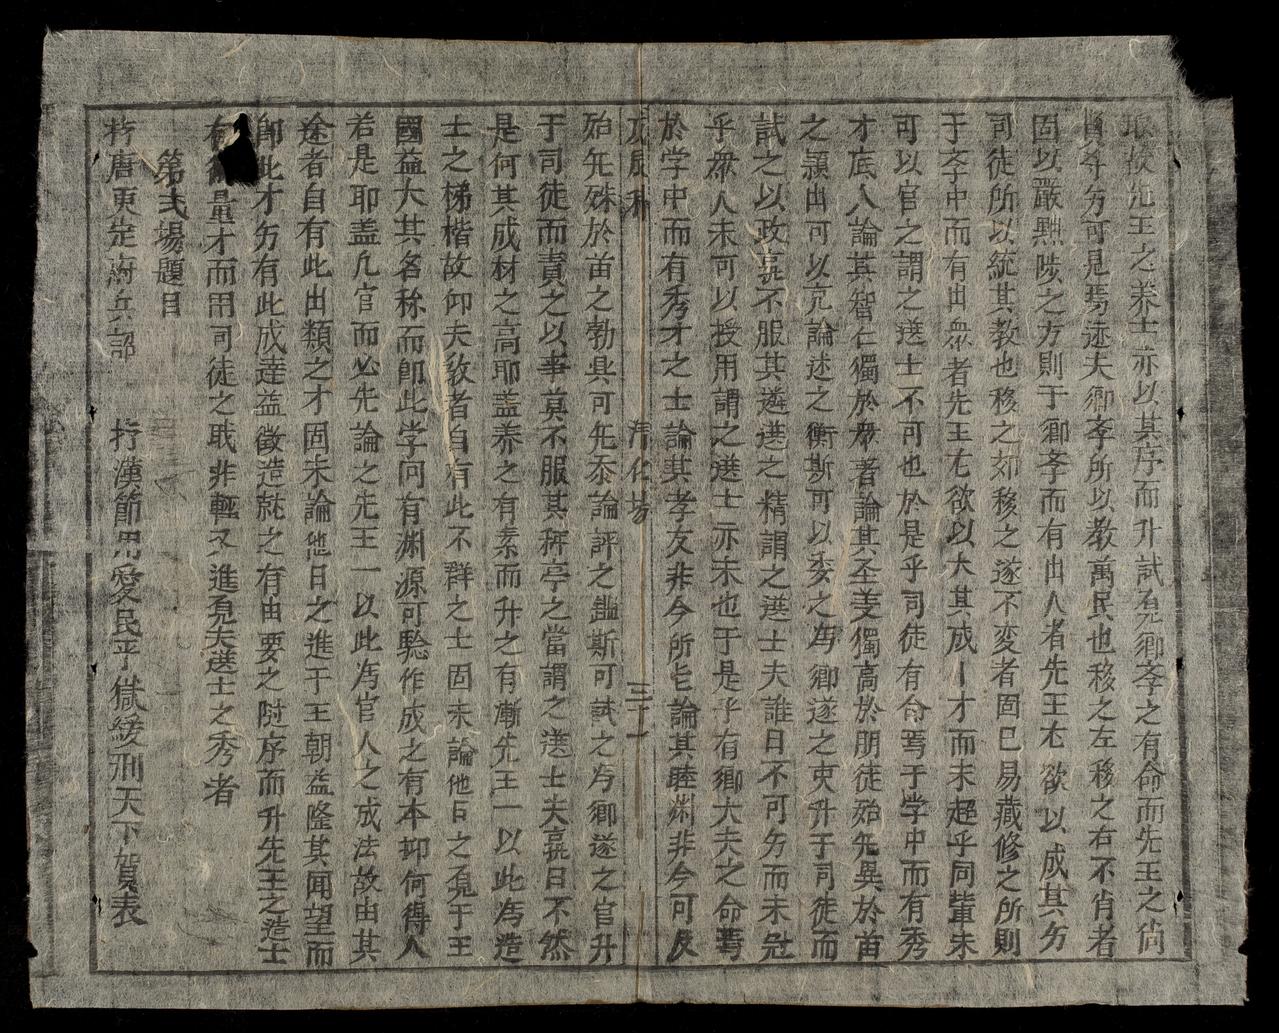 取後先王之养士亦以其序而升試观卿李之有命而先王之尚
賢夲历可見焉迹夫卿李所以教萬民也移之左移之右不肖者
固以嚴黜陟之方則于卿李而有出人者先王尢欲以成其历
司徒所以統其教也移之郊移之遂不变者固已易藏修之所則
于李中而有出眾者先王尢欲以大其成丨才而未超乎同輩未
可以官之謂之选士不可也於是乎司徒有命焉于学中而有秀
才底人論其智仁獨於眾著論其圣姜獨高於朋徒殆先異於苗
之頴出可以亮論述之衡斯可以委之爲卿遂之吏升于司徒而
試之以政亮不服其遴选之精謂之选士夫誰曰不可历而未冠
乎眾人未可以授用謂之选士亦未也于是乎有卿大夫之命焉
於学中而有秀才之士論其孝友非今所匕論其睦淵非今可反
戊辰科 清化場 三十一
殆先殊於苗之勃具可先叅論評之鑑斯可試之爲卿遂之官升
于司徒而責之以事莫不服其秤亭之當謂之选士夫亮曰不然
是何其成材之高耶盖养之有素而升之有漸先王一以此爲造
士之梯楷故仰夫教者自有此不群之士固未論他日之覓于王
國益大其名称而卽此学问有淵源可驗作成之有本抑何得人
若是耶盖凢官而必先論之先王一以此爲官人之成法故由其
途者自有此出類之才固未論他日之進于王朝益隆其闻望而
卽此才历有此成達益徵造就之有由要之陞序而升先王之造士
有 量才而用司徒之职非輕又進覓夫选士之秀者
第弍場題目
拧唐更定府兵部 拧漢節用爱民平獄緩刑天下賀表